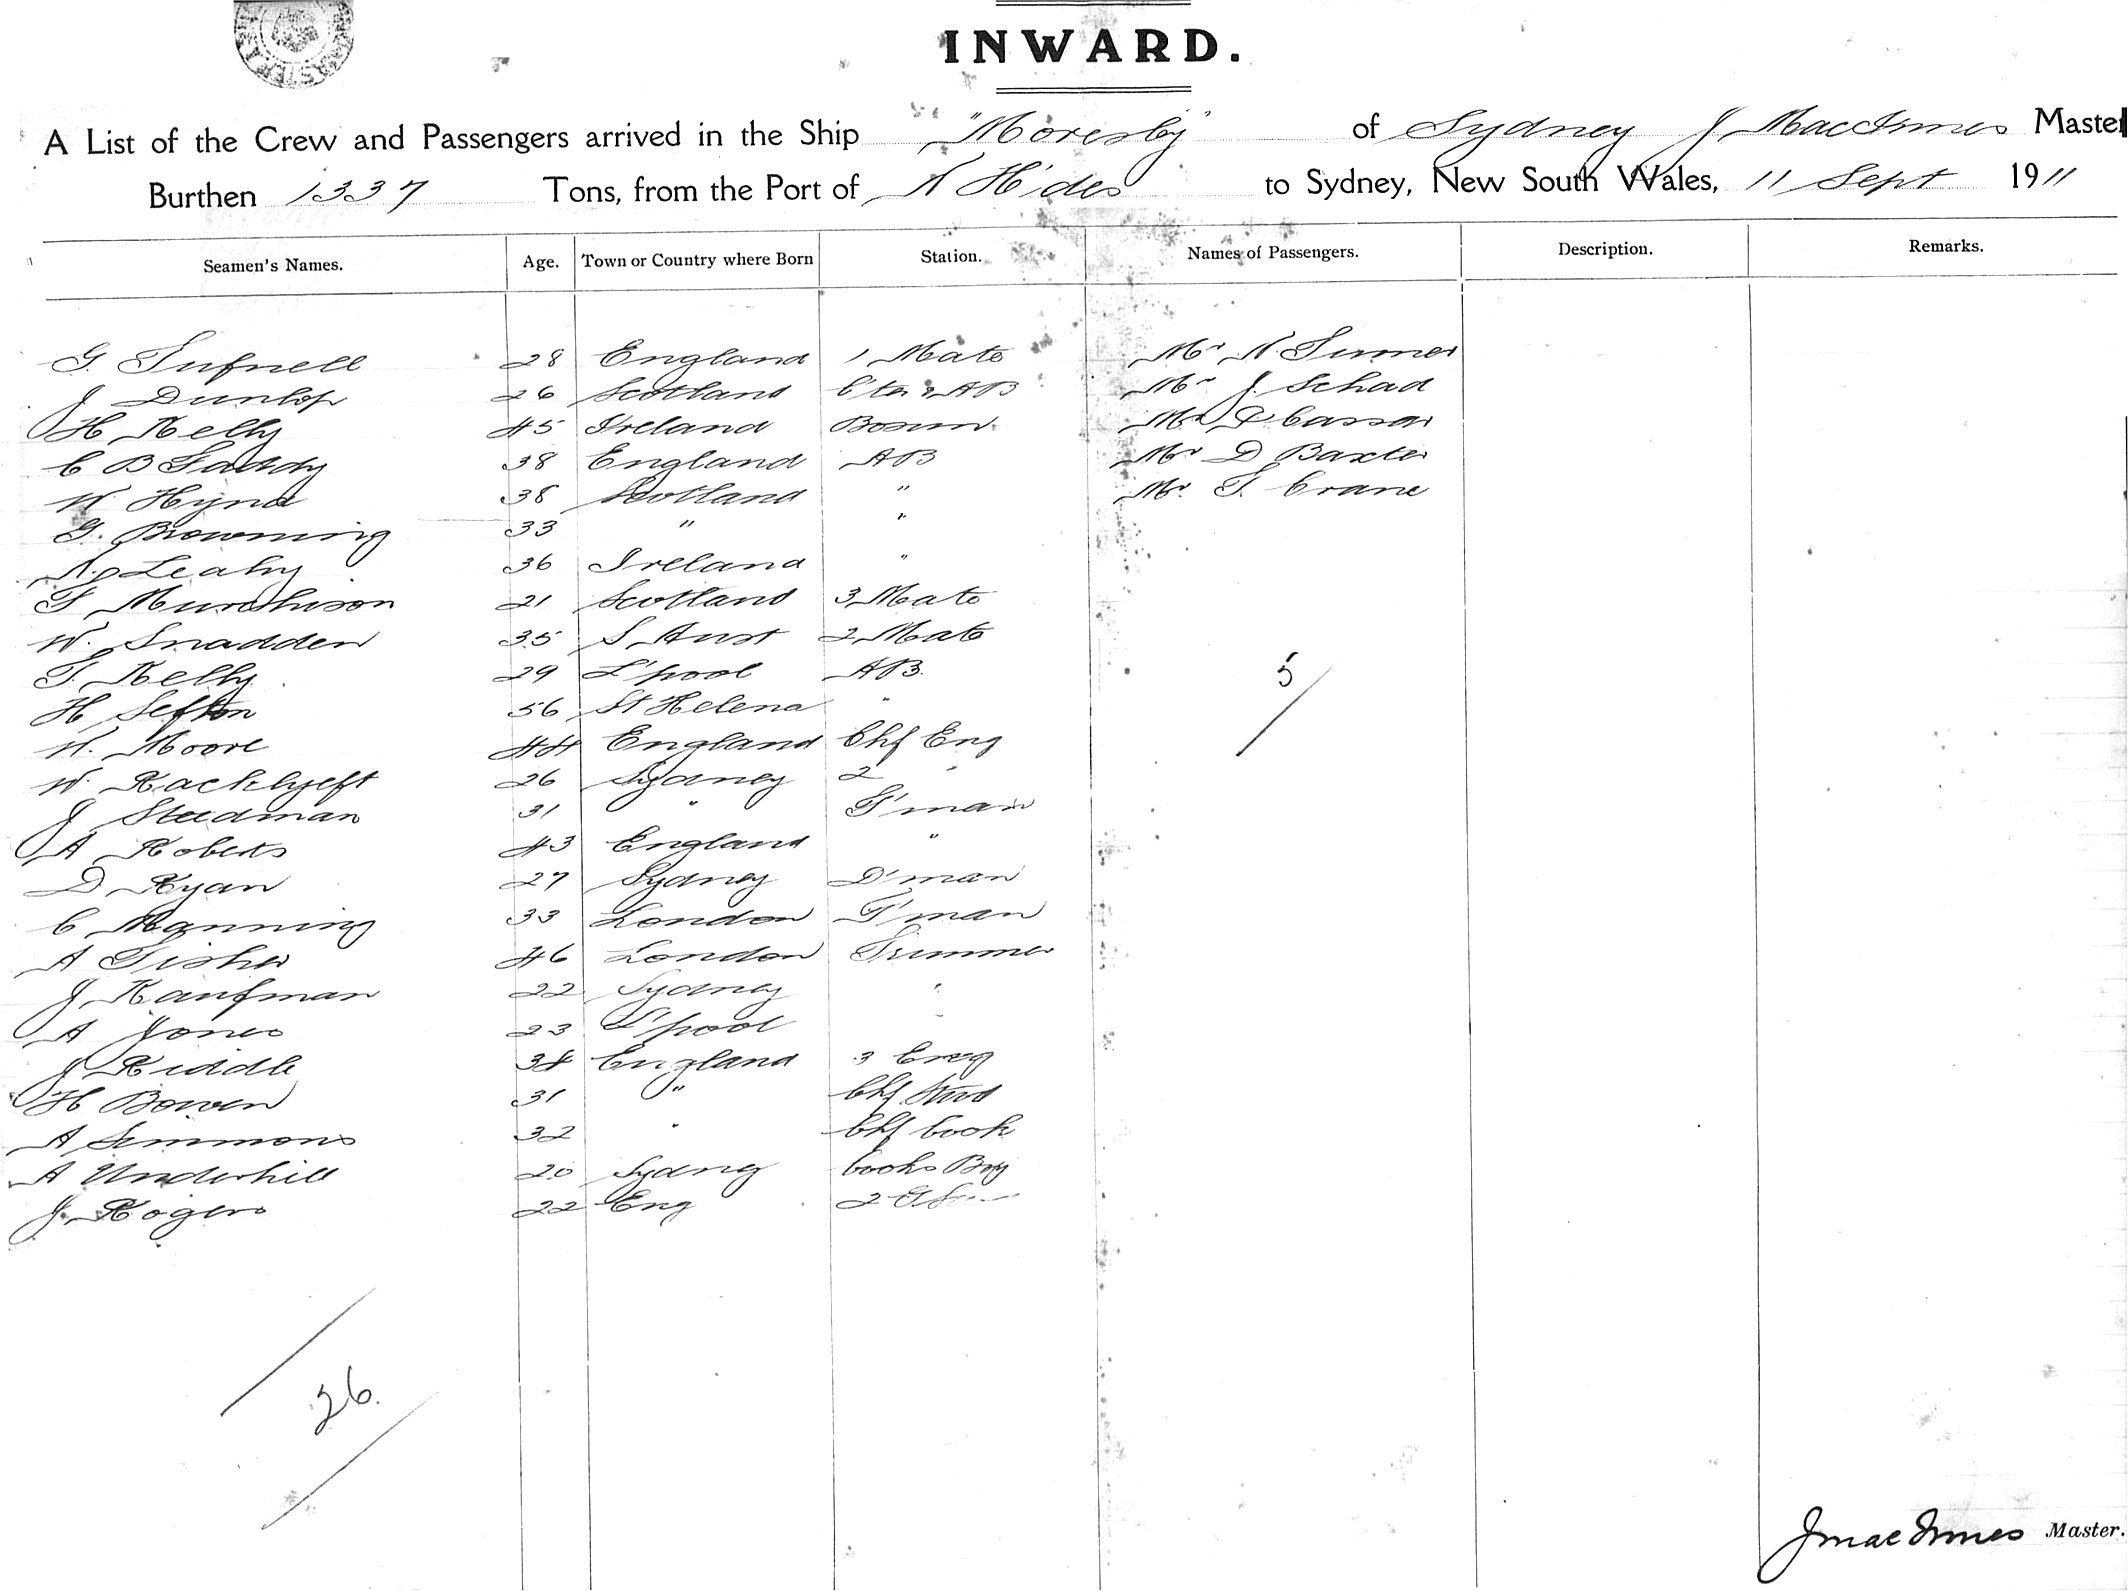 INWARD.
A List of the Crew and Passengers arrived in the Ship "Moresby" of Sydney J MacInnes Master
Burthen 1337 Tons, from the Port of N H'des to Sydney, New South Wales, 11 Sept 1911
Seamen's Names. Age. Town or Country where Born Station. Names of Passengers. Description. Remarks.
G. Tufnell 28 England 1 Mate Mr N. Turner
J Dunlop 26 Scotland C'ter & AB Mr J. Schad
H Kelly 45 Ireland Bosun Mr
C B Taddy 38 England AB Mr D Baxter
W Hynd 38 Scotland " Mr. T. Crane
G. Browning 33 " "
Leahy 36 Ireland "
F Murchison 21 Scotland 3 Mate
W. Snadden 35 S Aust 2 Mate
T. Kelly 29 L'pool AB.
H Sefton 56 St Helena "
W. Moore 44 England Chf Eng
W. Racklyeft 26 Sydney 2 "
J Steadman 31 " F'man
A Roberts 43 England "
D Ryan 27 Sydney D'man
C Manning 33 London F'man
A Fisher 46 London Trimmer
J. Kaufman 22 Sydney "
A Jones 23 L'pool "
J Riddle 34 England 3 Eng
H Bowen 31 " Chf Stwd
A Simmons 32 " Chf Cook
A Underhill 20 Sydney Cooks Boy
J. Rogers 22 Eng 2
5
26.
J MacInnes Master.